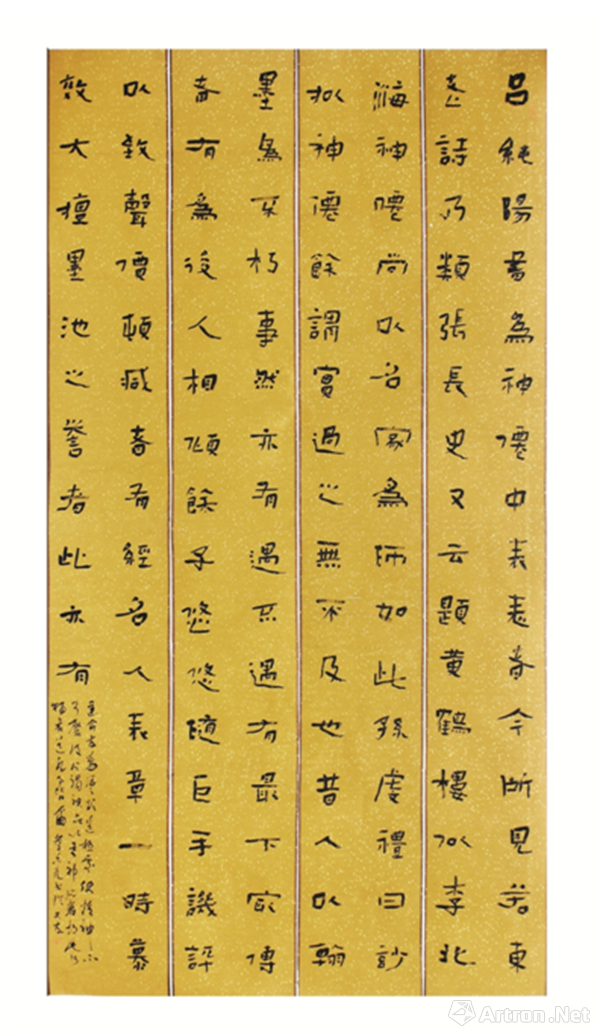 呂純陽書為神僊中表表者今所見若東
老詩乃類張長史又云題黄鶴樓似李北
海神僊尚以名家為師如此孫虔禮曰妙
拟神僊餘謂實過之無不及也昔人以翰
墨為不朽事然亦有遇不遇有最下家傳
者有為後人相傾餘子悠悠隨巨手譏評
以致聲價頓减者有經名人表章一時慕
效大擅墨池之譽者此亦有
Artron.Net